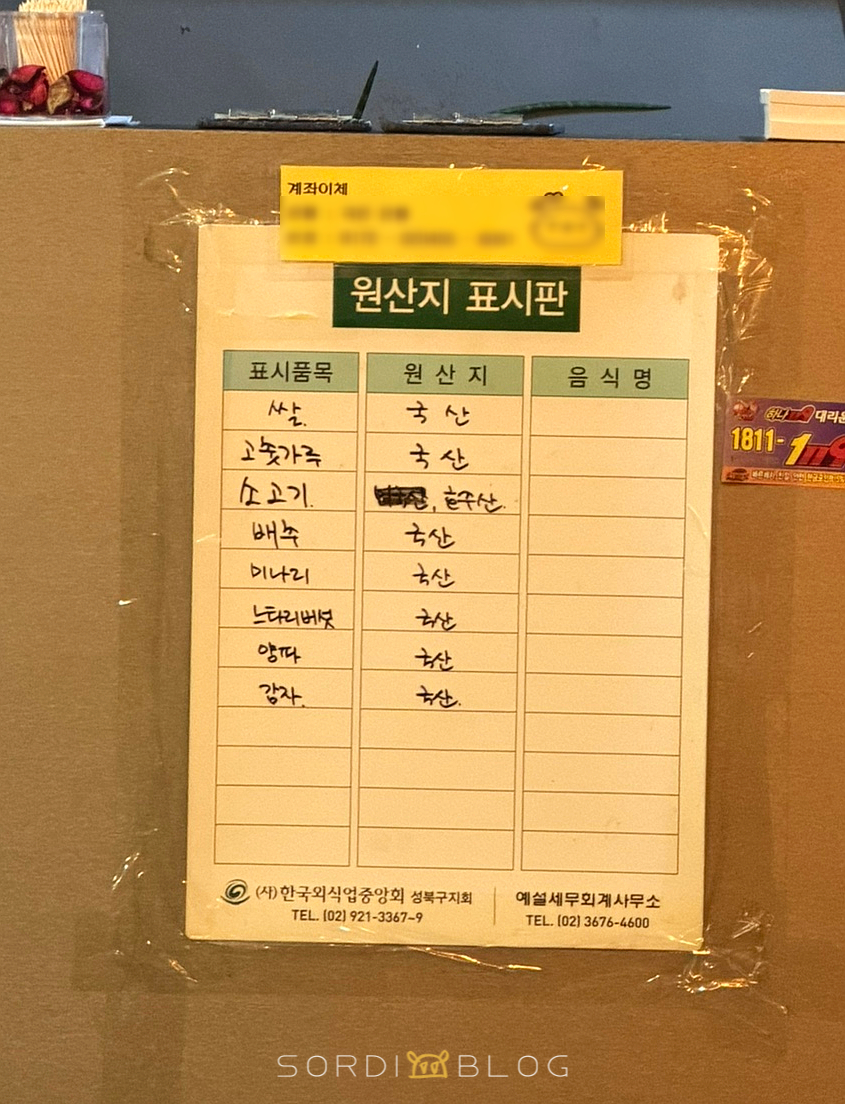 계좌이체
원산지 표시판
표시품목 원산지 음식명
쌀. 국산
고춧가루 국산
소고기. , 호주산.
배추 국산
미나리 국산
느타리버섯 국산
양파 국산
감자. 국산.
(사)한국외식업중앙회 성북구지회
TEL. (02) 921-3367~9
예설세무회계사무소
TEL. (02) 3676-4600
하나 대리운
1811-
SORDI BLOG